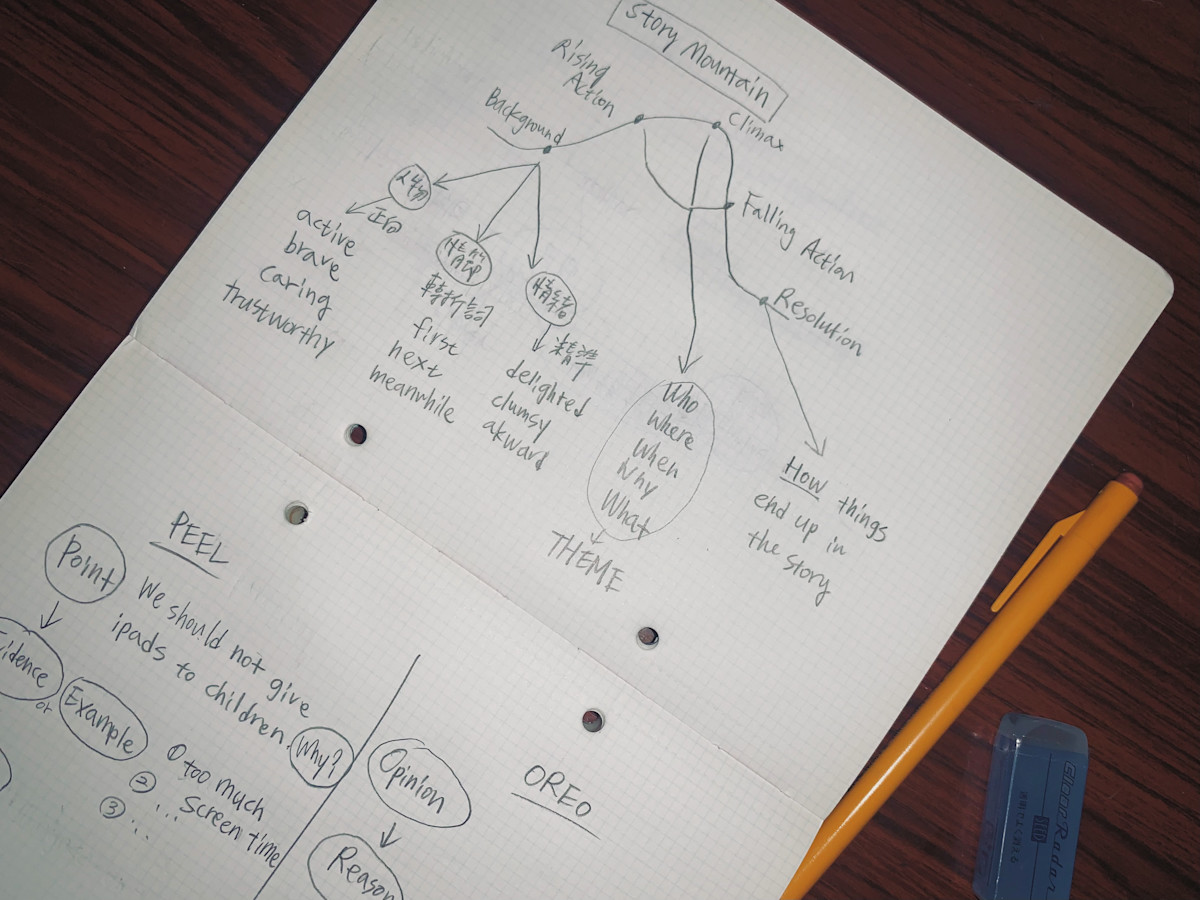 Story Mountain
Rising
Action
Background
Climax
Falling Action
Resolution
正向
active
brave
caring
trustworthy
轉折詞
first
next
meanwhile
情緒
精準
delighted
clumsy
akward
Who
Where
When
Why
What
THEME
How things
end up in
the story
PEEL
Point
We should not give
ipads to children.
Why?
or
Example
① too much
screen time
② ..
③ ...
Opinion
Reason
OREO
Clear Radar